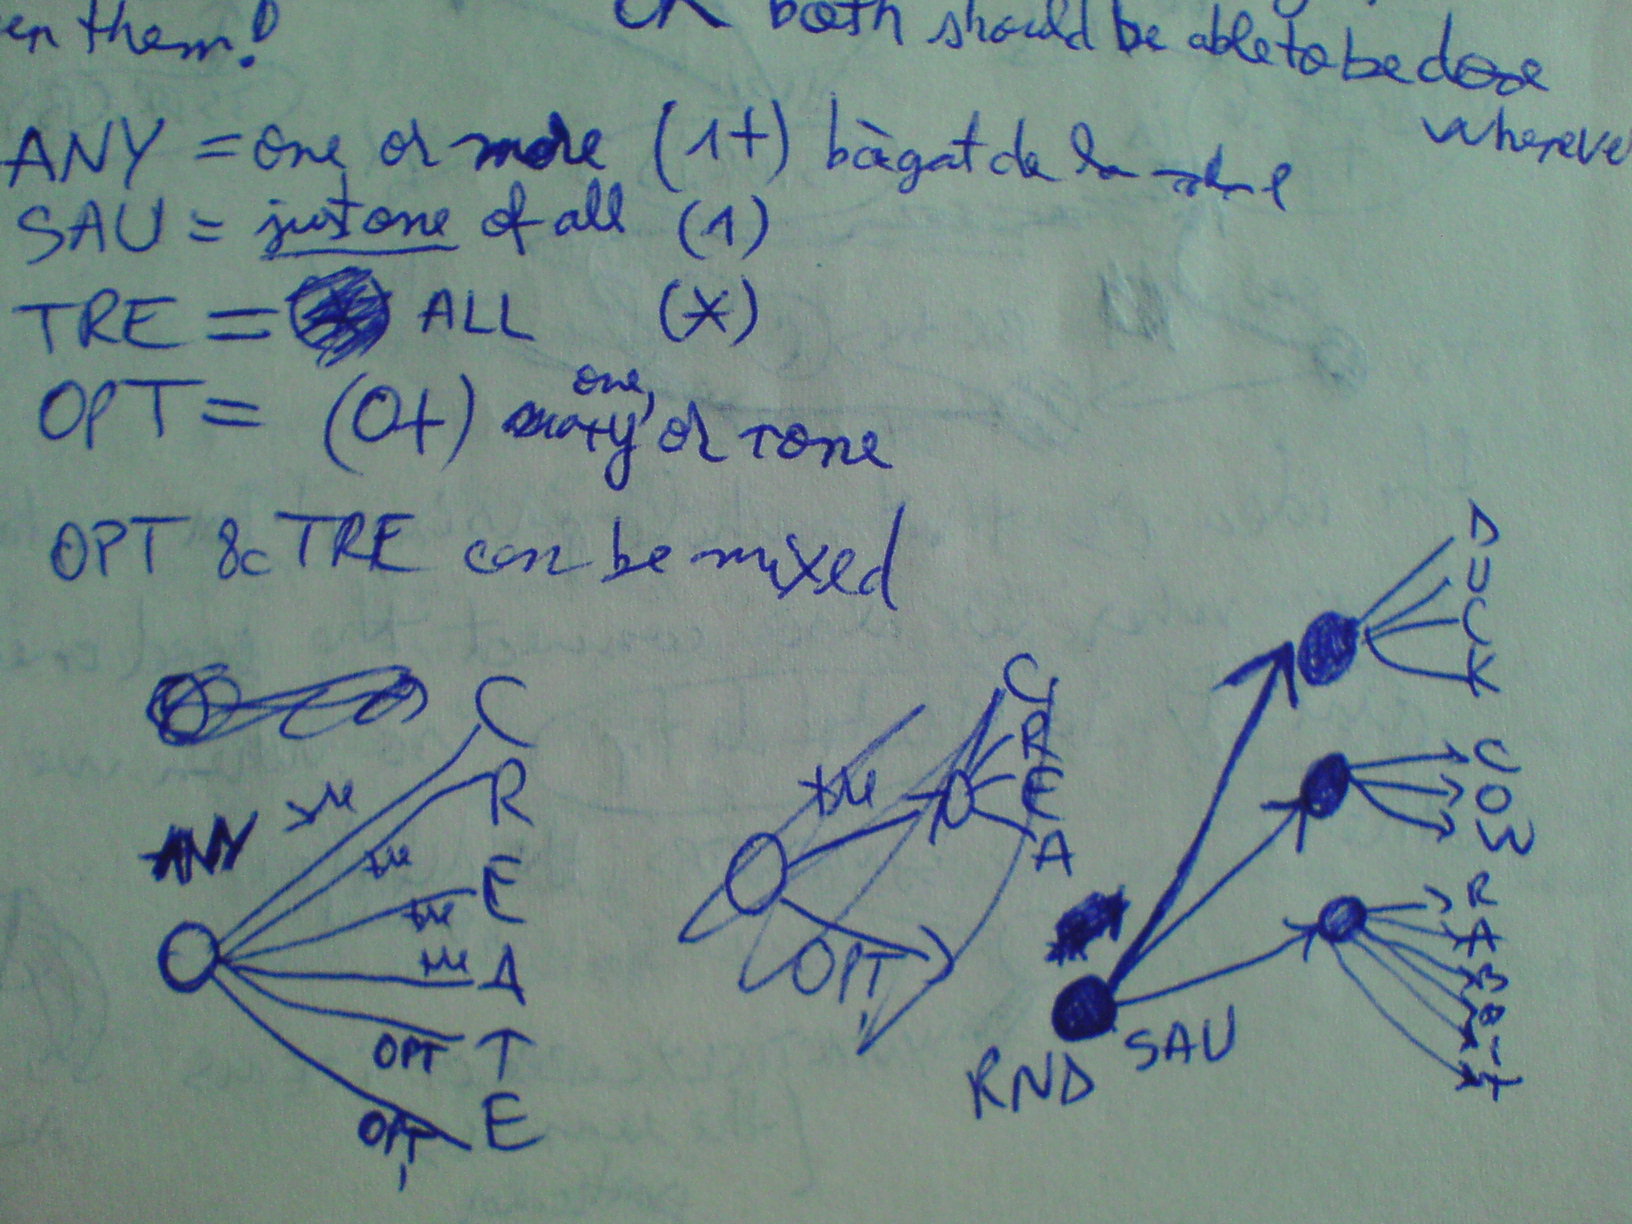 en them!
OR both should be able to be done
wherever
ANY = one or more (1+) băgat de la
SAU = just one of all (1)
TRE = ALL (*)
OPT = (0+) one, many or none
OPT & TRE can be mixed
C
R
E
A
T
E
ANY
OPT
OPT
C
R
E
A
OPT
D
U
C
K
C
O
W
R
A
B
B
I
T
RND SAU